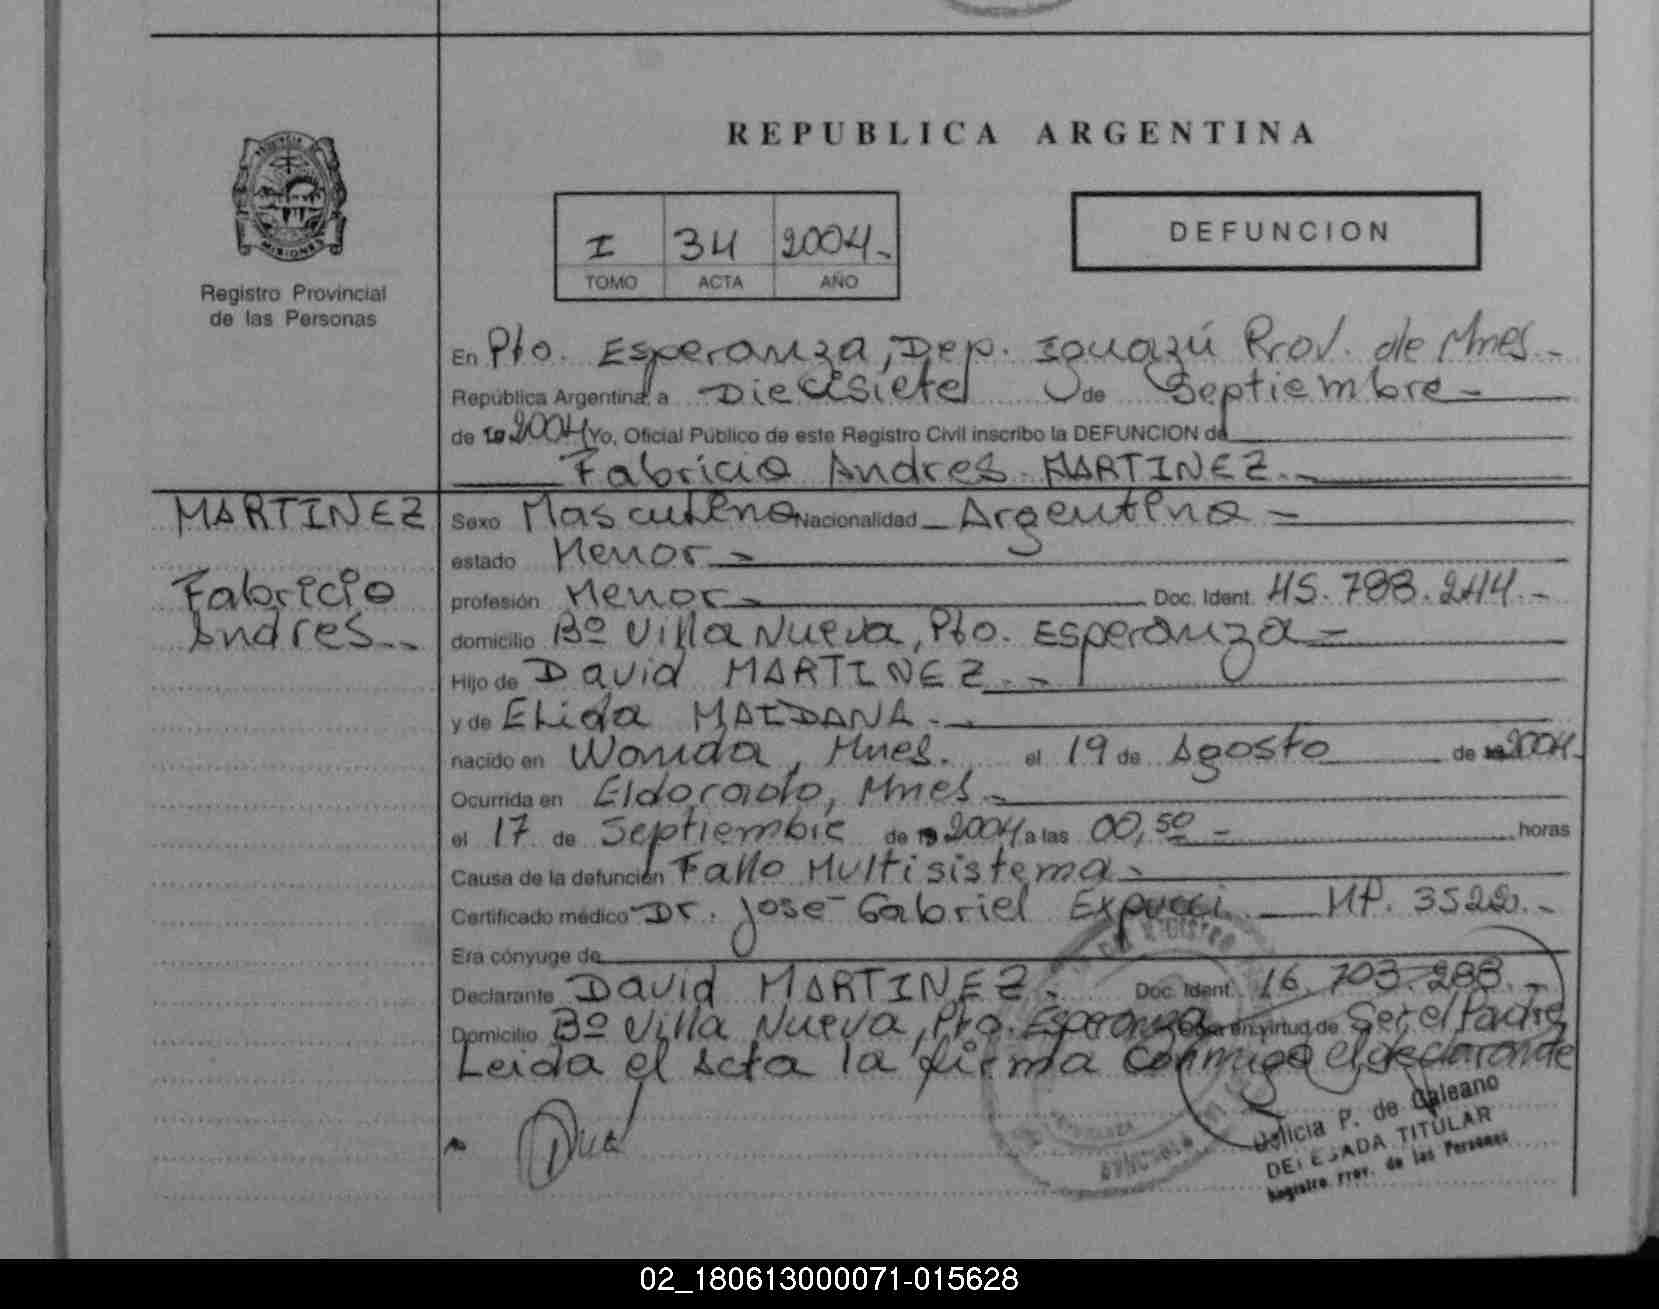 REPUBLICA ARGENTINA
PROVINCIA DE
MISIONES
Registro Provincial
de las Personas
I 34 2004.-
TOMO ACTA AÑO
DEFUNCION
En Pto. Esperanza, Dep. Iguazú Prov. de Mnes.-
República Argentina, a Diecisiete de Septiembre-
de 19 2004 Yo, Oficial Público de este Registro Civil inscribo la DEFUNCION de
Fabricio Andres MARTINEZ.-
MARTINEZ
Fabricio
Andres.-
Sexo Masculino Nacionalidad Argentina-
estado Menor-
profesión Menor- Doc. Ident. 45.788.244.-
domicilio Bº Villa Nueva, Pto. Esperanza-
Hijo de David MARTINEZ.-
y de Elida MAIDANA.-
nacido en Wanda, Mnes. el 19 de Agosto de 19 2004.
Ocurrida en Eldorado, Mnes-
el 17 de Septiembre de 19 2004 a las 00,50- horas
Causa de la defunción Fallo Multisistema-
Certificado médico Dr. José Gabriel MP. 3522.-
Era cónyuge de
Declarante David MARTINEZ. Doc. Ident. 16.703.288.-
Domicilio Bº Villa Nueva, Pto. Esperanza Obra en virtud de Ser el Padre
Leida el Acta la firma conmigo el declarante
Delicia P. de Galeano
DELEGADA TITULAR
Registro Prov. de las Personas
02_180613000071-015628